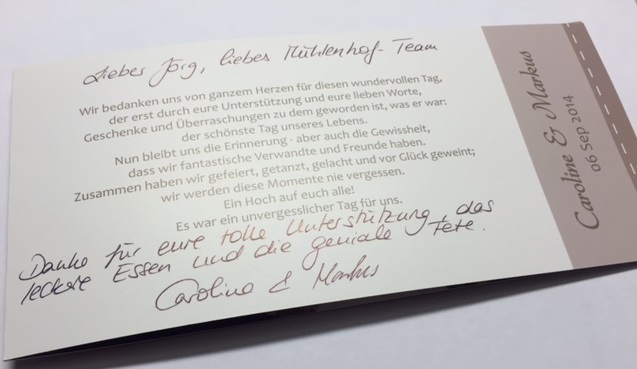 Lieber Jörg, liebes Mühlenhof-Team
Wir bedanken uns von ganzem Herzen für diesen wundervollen Tag,
der erst durch eure Unterstützung und eure lieben Worte,
Geschenke und Überraschungen zu dem geworden ist, was er war:
der schönste Tag unseres Lebens.
Nun bleibt uns die Erinnerung - aber auch die Gewissheit,
dass wir fantastische Verwandte und Freunde haben.
Zusammen haben wir gefeiert, getanzt, gelacht und vor Glück geweint;
wir werden diese Momente nie vergessen.
Ein Hoch auf euch alle!
Es war ein unvergesslicher Tag für uns.
Danke für eure tolle Unterstützung, das
leckere Essen und die geniale Fete.
Caroline & Markus
Caroline & Markus
06 Sep 2014